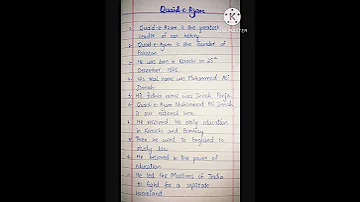 Quaid-e-Azam
1- Quaid-e-Azam is the greatest
leader of our history
2- Quaid-e-Azam is the founder of
Pakistan.
3- He was born in Karachi on 25th
December 1876
4- His real name was Muhammad Ali
Jinnah.
5- His father name was Jinnah Poonja
6- Quaid-e-Azam Muhammad Ali Jinnah
is our national hero.
7- He received his early education
in Karachi and Bombay
8- Then he went to England to
study law.
9- He believed in the power of
education
10- He led the Muslims of India
to fight for a separate
homeland